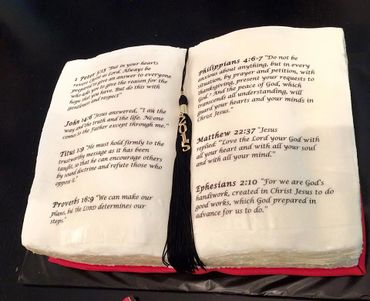 1 Peter 3:15 "But in your hearts
revere Christ as Lord. Always be
prepared to give an answer to everyone
who asks you to give the reason for the
hope that you have. But do this with
gentleness and respect"
John 14:6 "Jesus answered, "I am the
way and the truth and the life. No one
comes to the Father except through me."
Titus 1:9 "He must hold firmly to the
trustworthy message as it has been
taught, so that he can encourage others
by sound doctrine and refute those who
oppose it."
Proverbs 16:9 "We can make our
plans, but the LORD determines our
steps."
2015
Philippians 4:6-7 "Do not be
anxious about anything, but in every
situation, by prayer and petition, with
thanksgiving, present your requests to
God. And the peace of God, which
transcends all understanding, will
guard your hearts and your minds in
Christ Jesus."
Matthew 22:37 "Jesus
replied: "Love the Lord your God with
all your heart and with all your soul
and with all your mind."
Ephesians 2:10 "For we are God's
handiwork, created in Christ Jesus to do
good works, which God prepared in
advance for us to do."